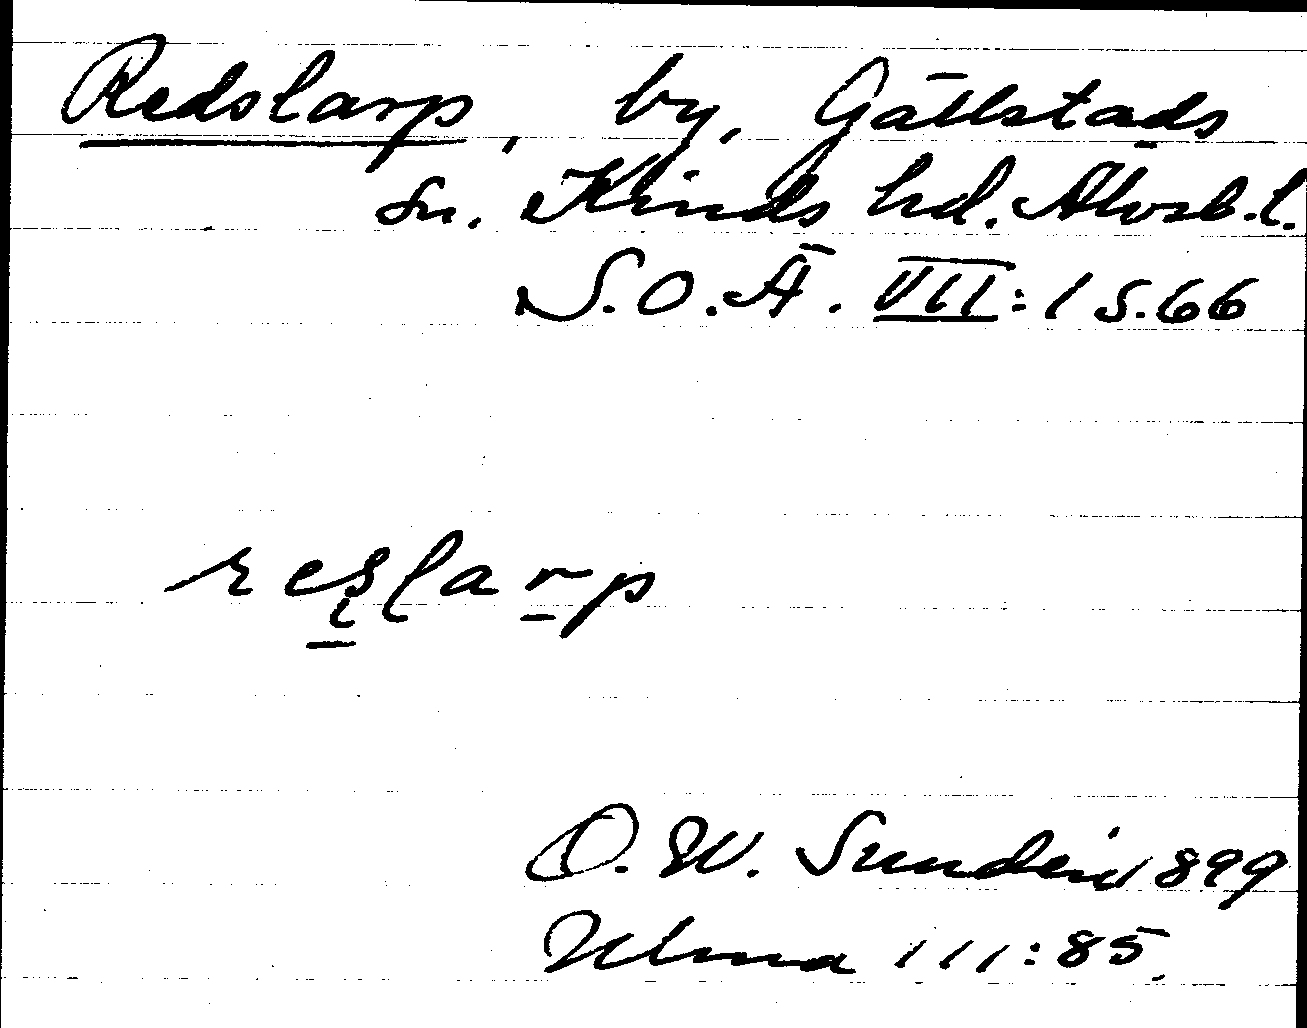 Redslarp, by, Gällstads
sn. Kinds hd. Älvsb. l.
S.O.Ä. VII:1 s.66
reslarp
O. W. Sundén 1899
Ulma 111:85.